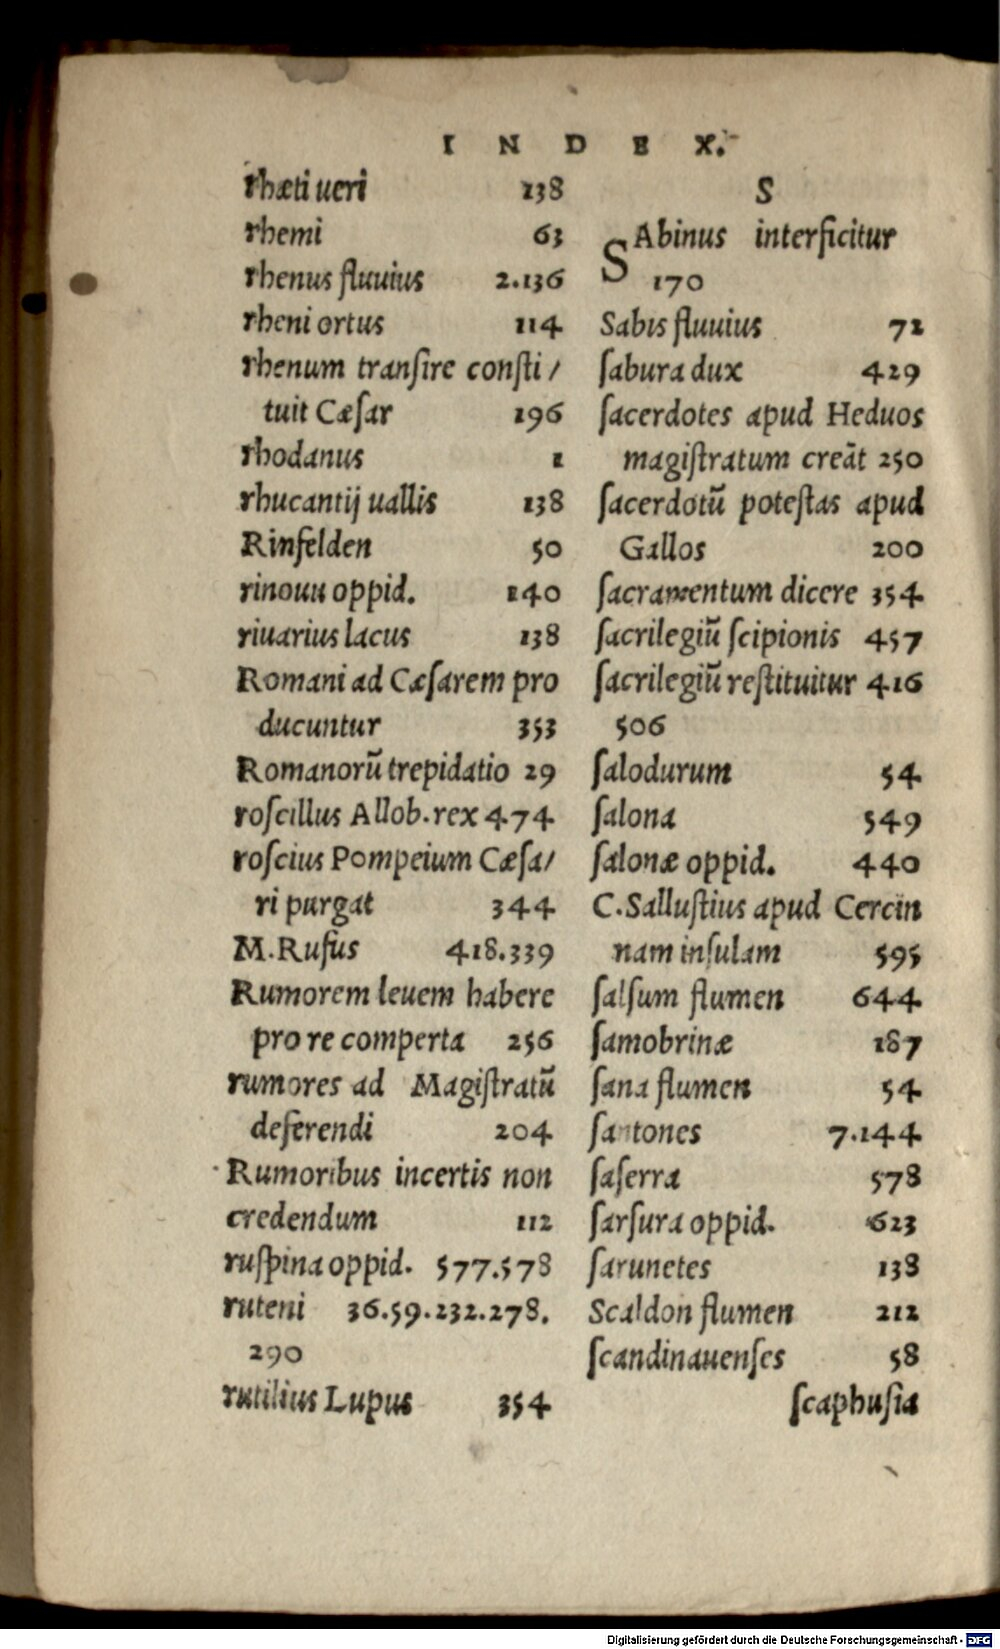 INDEX.
rhæti ueri 138
rhemi 63
rhenus fluuius 2.136
rheni ortus 114
rhenum tranſire conſti/
tuit Cæſar 196
rhodanus 1
rhucantij uallis 138
Rinfelden 50
rinouu oppid. 140
riuarius lacus 138
Romani ad Cæſarem pro
ducuntur 353
Romanorū trepidatio 29
roſcillus Allob.rex 474
roſcius Pompeium Cæſa/
ri purgat 344
M.Rufus 418.339
Rumorem leuem habere
pro re comperta 256
rumores ad Magiſtratū
deferendi 204
Rumoribus incertis non
credendum 112
ruſpina oppid. 577.578
ruteni 36.59.232.278.
290
rutilius Lupus 354
S
SAbinus interficitur
170
Sabis fluuius 72
ſabura dux 429
ſacerdotes apud Heduos
magiſtratum creāt 250
ſacerdotū poteſtas apud
Gallos 200
ſacramentum dicere 354
ſacrilegiū ſcipionis 457
ſacrilegiū reſtituitur 416
506
ſalodurum 54
ſalona 549
ſalonæ oppid. 440
C.Salluſtius apud Cercin
nam inſulam 595
ſalſum flumen 644
ſamobrinæ 187
ſana flumen 54
ſantones 7.144
ſaſerra 578
ſarſura oppid. 623
ſarunetes 138
Scaldon flumen 212
ſcandinauenſes 58
ſcaphuſia
Digitalisierung gefördert durch die Deutsche Forschungsgemeinschaft - DFG